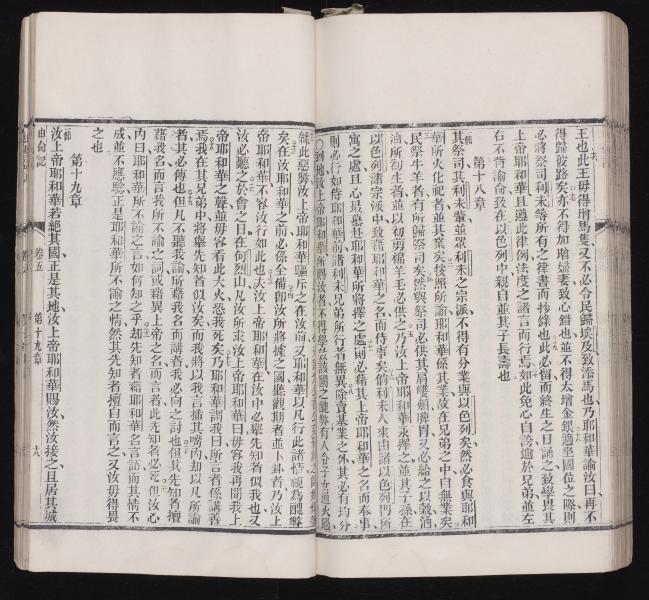 王也此王毋得增馬隻又不必令民歸埃及致添馬也乃耶華諭汝曰再不
得歸彼路矣亦不得加增婦妻致心錯也並不得太增金銀適坐國位之際則
必將祭司利未等所有之律書而抄錄也此必留而終生之日誦之致學畏其
上帝耶和華且遵此律例法度之諸言而行焉如此免心自誇逾於兄弟並左
右不背諭命致在以色列中親自並其子長壽也
第十八章
其祭司其利未輩並眾利未之宗派不得有分業與以色列矣然必食與耶和
華所火化祀者並其業矣按照所諭耶和華係其業故在兄弟之中自無業矣
民祭牛羊者有所歸祭司矣然與祭司必供其肩腮頰脾胃又必給之以穀酒
油所初生者並以初剪綿羊毛必供之乃汝上帝耶和華永擇之並其子孫在
以色列諸宗派中致藉耶和華之名而侍事矣倘利未人來由諸以色列門所
寓之處且心最慕赴耶和華所將擇之處則必藉其上帝耶和華之名而奉事
則必行如侍耶和華前諸利未兄弟所行者無異除賣基業之外其必有均分
○到地汝上帝耶和華所賜汝者不得學效該國之醜弊有人令子女過火過
矣在汝耶和華之前必係全備即汝所將據之國聽觀期者並卜卦者乃汝上
帝耶和華不容汝行如此也夫汝上帝耶和華在汝中必舉先知者似我也又
汝必聽之於會之日在何烈山凡汝所求汝上帝耶和華曰毋容我再聞我上
帝耶和華之聲並毋容看此大火恐我死矣乃耶和華謂我曰所言者係講善
焉我在其兄弟中將舉先知者似汝矣而我將以我言插其嘴內却以凡所諭
者其必傳也但凡不聽我諭所藉我名而講者我必向之討也但其先知者擅
藉我名而言我所不諭之詞或藉異上帝之名而言者此先知者必死但汝心
內曰耶和華所不諭之言如何知之乎却先知者藉耶和華名言語而其情不
成並不應驗正是耶和華所不諭之情然其先知者擅自而言之又汝毋得畏
之也
第十九章
汝上帝耶和華若絕其國正是其地汝上帝耶和華賜汝然汝接之且居其城
申命記 卷五 第十九章